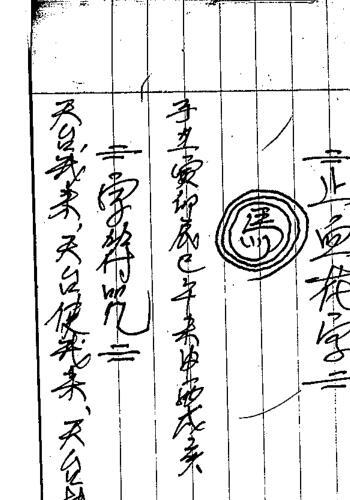 止血花字
馬
子丑寅卯辰巳午未申酉戌亥
字符咒
天台我来、天台使我来、天台